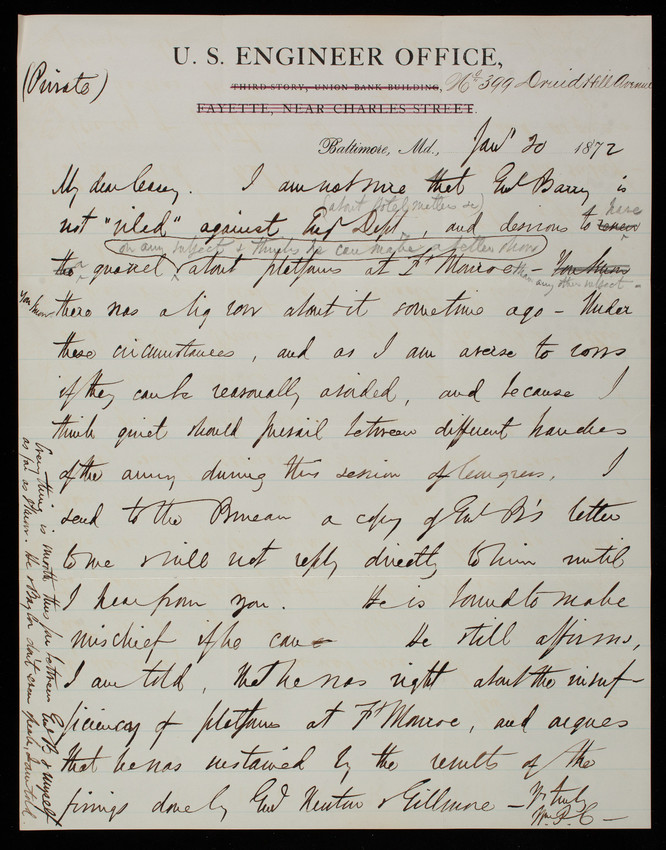 (Private)
U. S. ENGINEER OFFICE,
THIRD STORY, UNION BANK BUILDING, No 399 Druid Hill Avenue
FAYETTE, NEAR CHARLES STREET.
Baltimore, Md., Jany 20 1872
My dear Casey. I am not sure that Genl Barry is
(about hotel matters &c)
not "riled" against Engr Dept, and desirous to have
on any subject & thinks he can make a better show
a quarrel about platforms at Ft Monroe than any other subject - You know
there was a big row about it sometime ago - Under
these circumstances, and as I am averse to rows
if they can be reasonably avoided, and because I
think quiet should prevail between different branches
of the army during this session of Congress, I
send to the Bureau a copy of Genl B's letter
to me & will not reply directly to him until
I hear from you. He is bound to make
mischief if he can He still affirms,
I am told, that he was right about the insuf-
ficiency of platforms at Ft Monroe, and argues
that he was sustained by the results of the
firings done by Genl Newton & Gillmore - Yr truly
Wm. P. C -
Everything is smooth thus far between Genl B & myself
as far as I know. He & Baylor don't even speak, I am told.